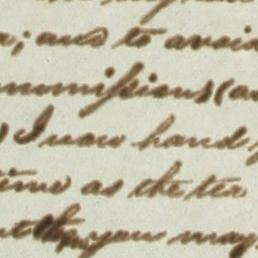 ; and to avoid
ommissions (a
I now hand
time as the ten
you may